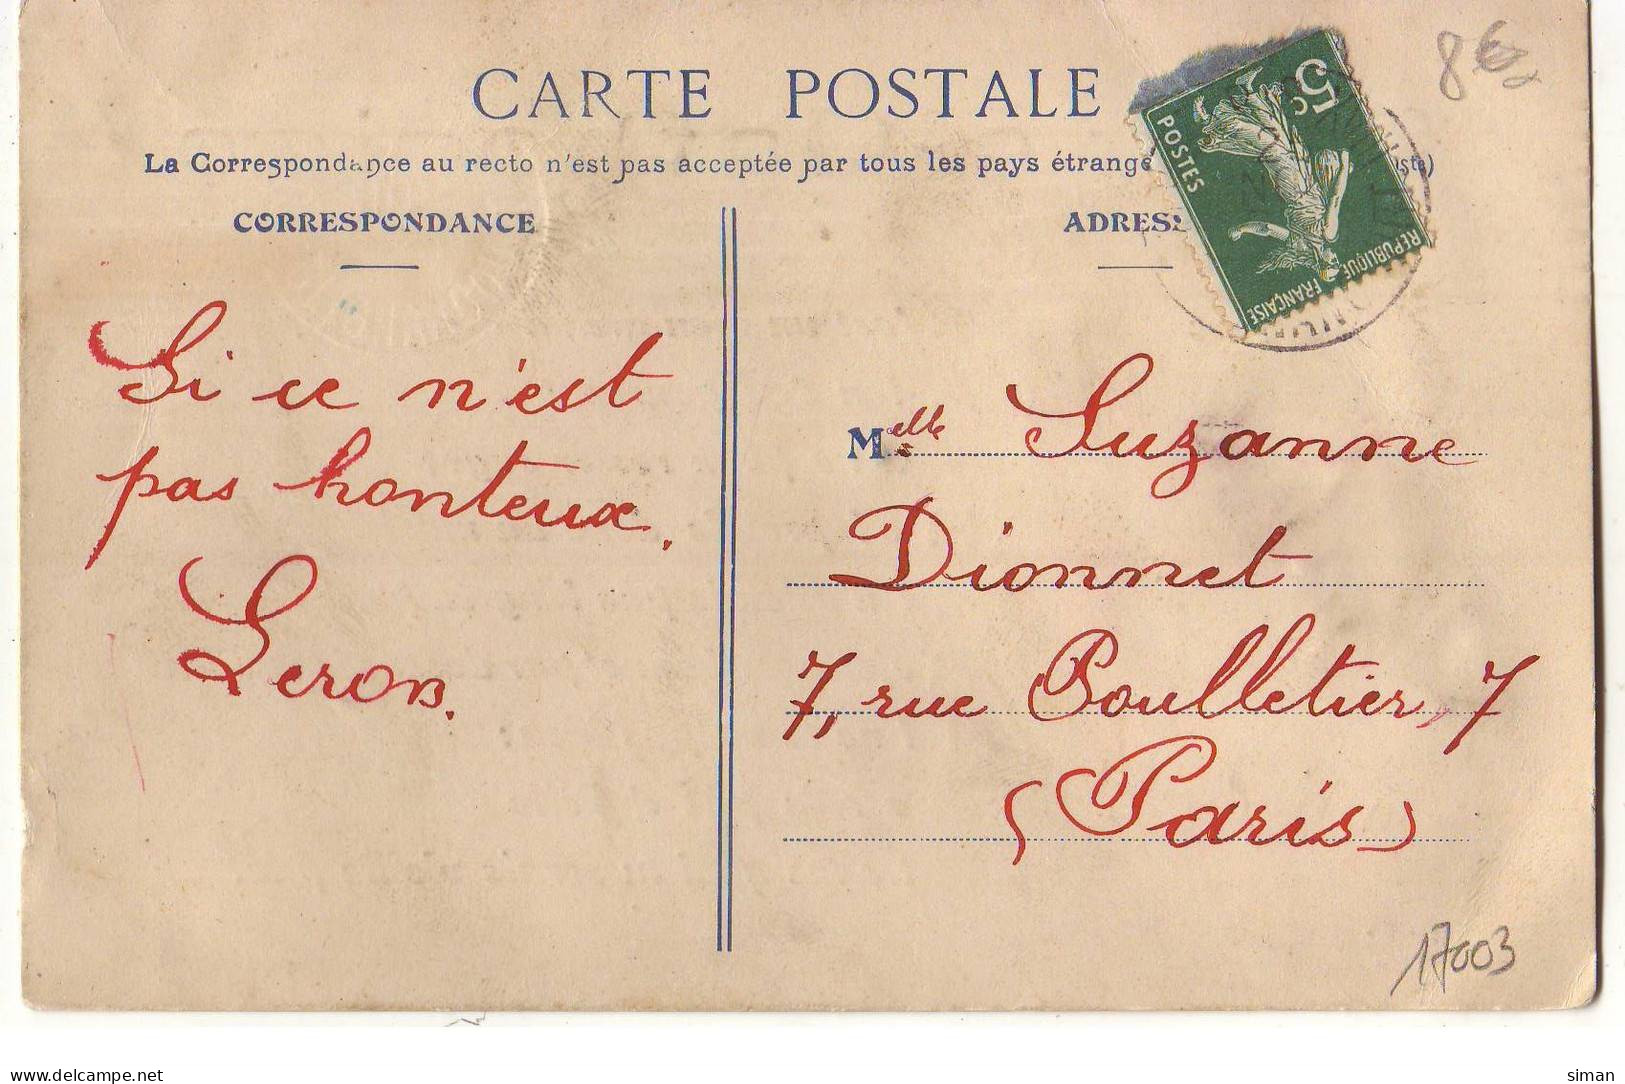 CARTE POSTALE
8€
La Correspondance au recto n'est pas acceptée par tous les pays étrange
CORRESPONDANCE
ADRES
5c
POSTES
REPUBLIQUE FRANÇAISE
Si ce n'est
pas honteux.
Leron.
Melle Suzanne
Dionnet
7, rue Poulletier, 7
(Paris)
17003
delcampe.net
siman